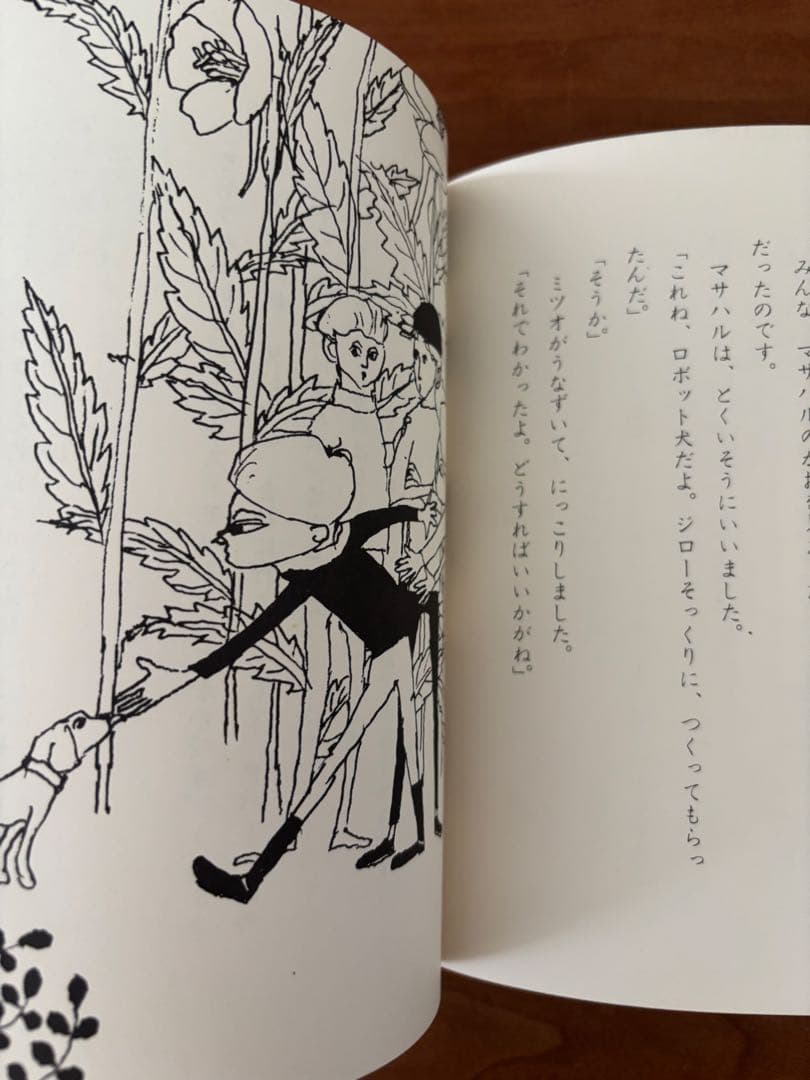 みんな、マサハルのか
だったのです。
マサハルは、とくいそうにいいました。
「これね、ロボット犬だよ。ジローそっくりに、つくってもらっ
たんだ。」
「そうか。」
ミツオがうなずいて、にっこりしました。
「それでわかったよ。どうすればいいかがね。」